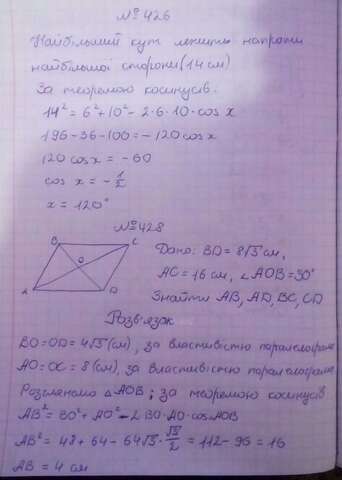 №426
Найбільший кут лежить напроти
найбільшої сторони (14 см)
За теоремою косинусів:
14² = 6² + 10² - 2·6·10·cos x
196 - 36 - 100 = - 120 cos x
120 cos x = - 60
cos x = - 1/2
x = 120°
№428
B C
O
A D
Дано: BD = 8√3 см,
AC = 16 см, ∠AOB = 30°
Знайти AB, AD, BC, CD
Розв'язок
BO = OD = 4√3 (см), за властивістю паралелограма
AO = OC = 8 (см), за властивістю паралелограма
Розглянемо △AOB; за теоремою косинусів
AB² = BO² + AO² - 2 BO·AO·cos AOB
AB² = 48 + 64 - 64√3 · √3/2 = 112 - 96 = 16
AB = 4 см